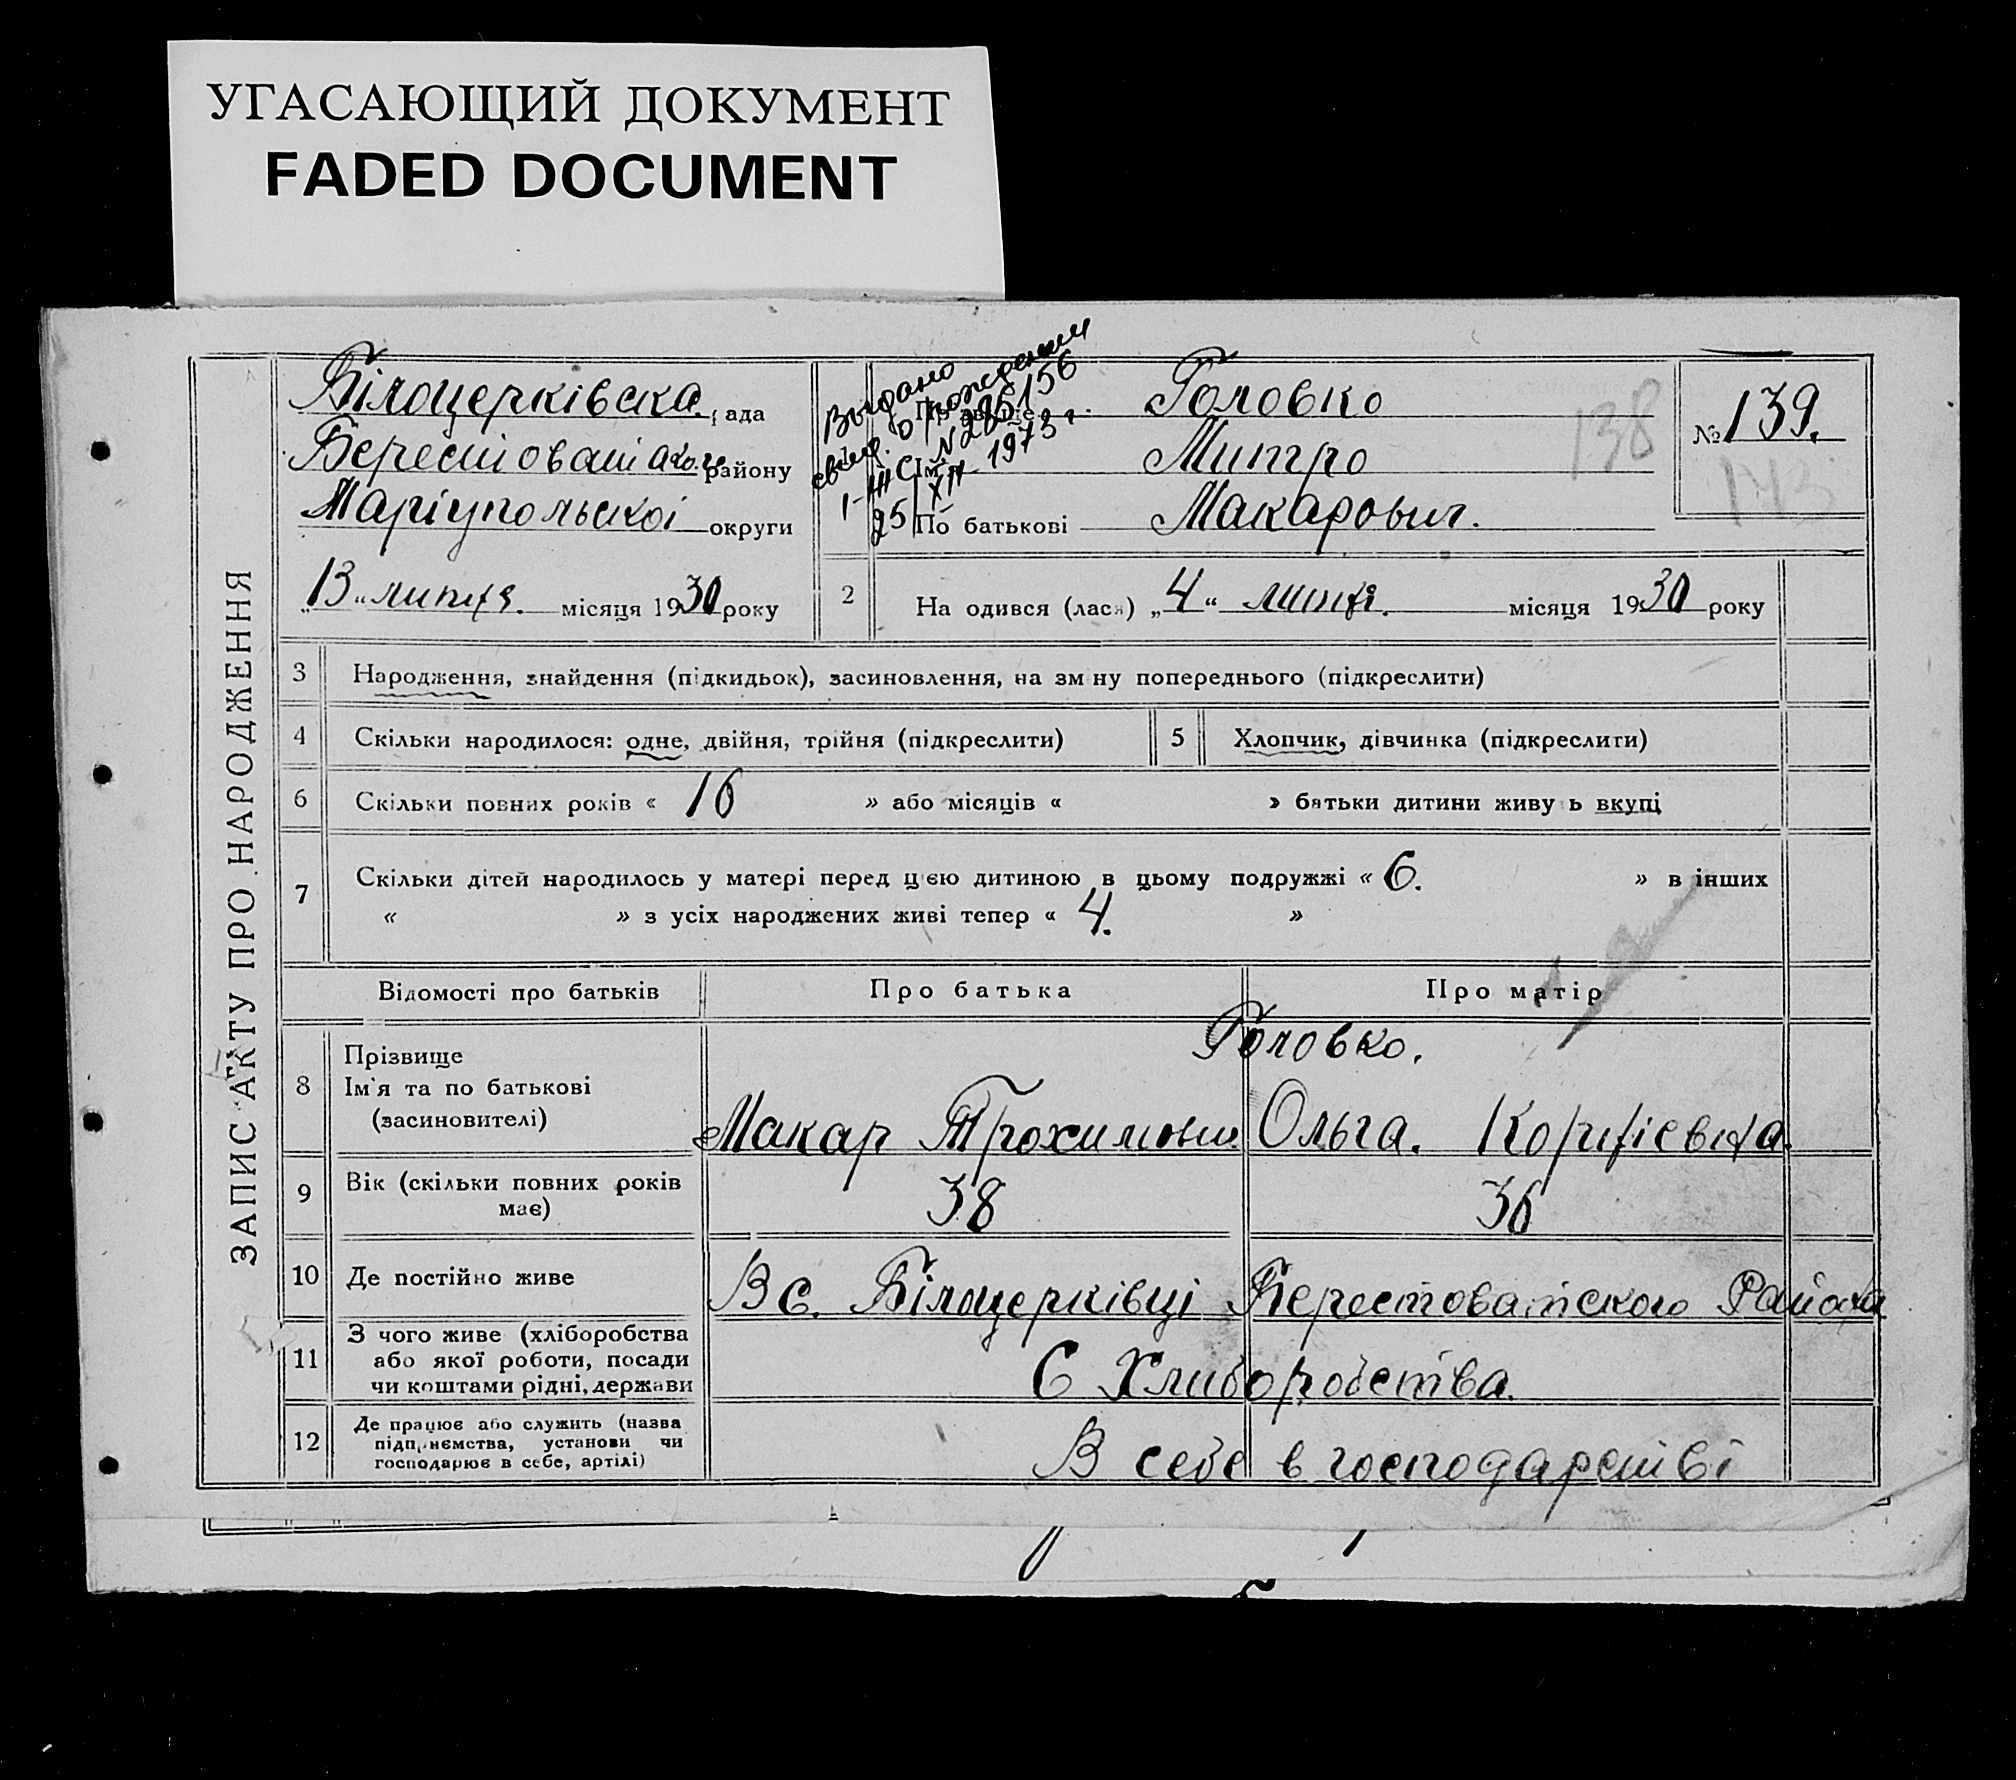 УГАСАЮЩИЙ ДОКУМЕНТ
FADED DOCUMENT
ЗАПИС АКТУ ПРО НАРОДЖЕННЯ
Білоцерківска рада
району
Маріупольскої округи
„13“ липня місяця 1930 року
Выдано
свид. о рождении
I-ЖС № 285156
25/XII 1973 г.
Головко
Ім'я Митро
По батькові Макарович.
№ 139.
138
143
2 На одився (лася) „4“ липня. місяця 1930 року
3 Народження, знайдення (підкидьок), засиновлення, на зм ну попереднього (підкреслити)
4 Скільки народилося: одне, двійня, трійня (підкреслити)
5 Хлопчик, дівчинка (підкреслити)
6 Скільки повних років « 16 » або місяців « » батьки дитини живу ь вкупі
7 Скільки дітей народилось у матері перед цією дитиною в цьому подружжі « 6. » в інших
« » з усіх народжених живі тепер « 4. »
Відомості про батьків Про батька Про матір
8 Прізвище Головко.
Ім'я та по батькові
(засиновителі) Макар Трохимови Ольга.
9 Вік (скільки повних років має) 38 36
10 Де постійно живе В с. Білоцерківці Берестоватского Района
11 З чого живе (хліборобства
або якої роботи, посади
чи коштами рідні, держави С Хлиборобства.
12 Де працює або служить (назва
підприємства, установи чи
господарює в себе, артілі) В себе в господарстві